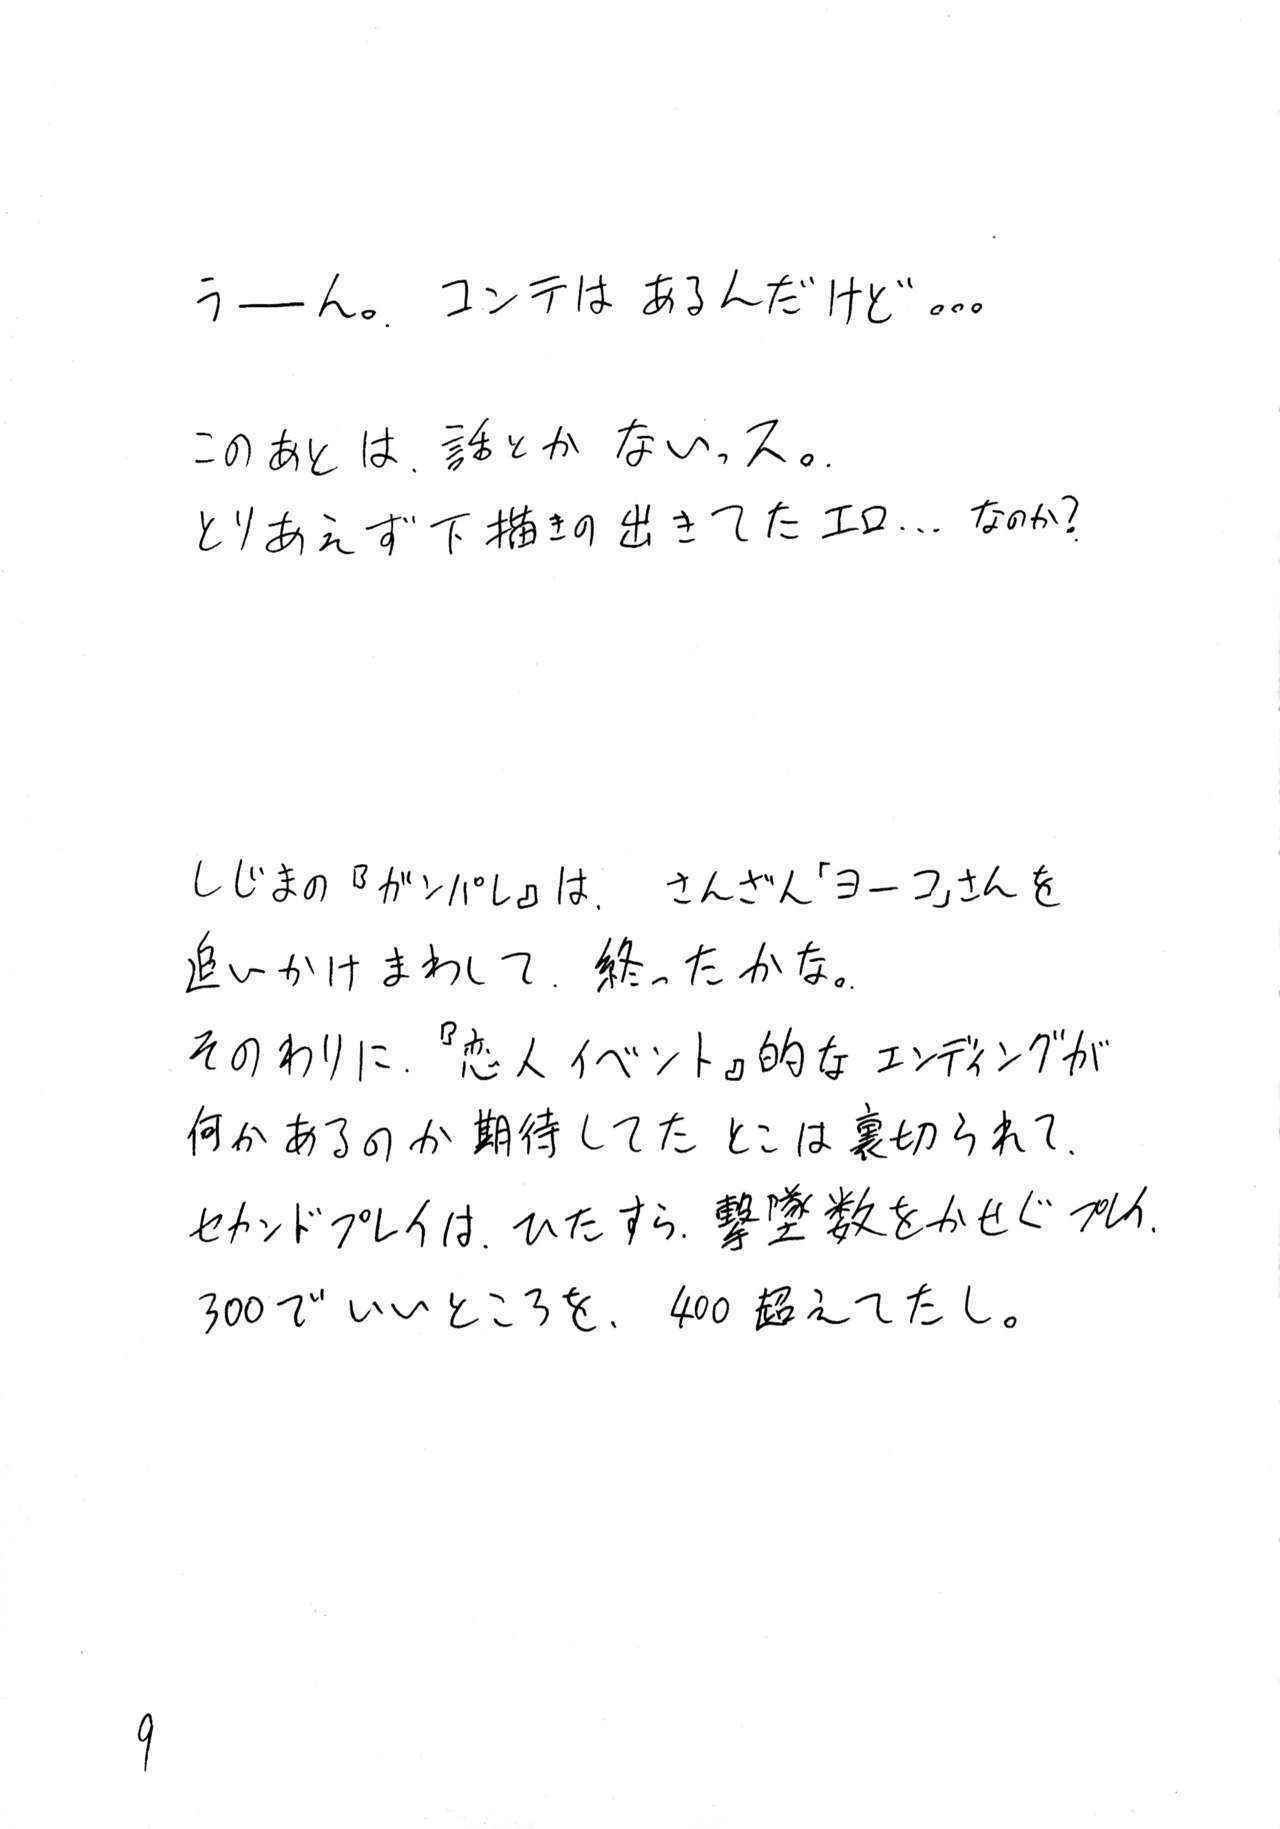 うーん。 コンテは あるんだけど...
このあとは、話とか ないっス。
とりあえず下描きの出きてたエロ... なのか?
しじまの『ガンパレ』は、 さんざん「ヨーコ」さんを
追いかけまわして、終ったかな。
そのわりに、『恋人イベント』的なエンディングが
何かあるのか期待してたとこは裏切られて、
セカンドプレイは、ひたすら、撃墜数をかせぐプレイ、
300でいいところを、 400超えてたし。
9